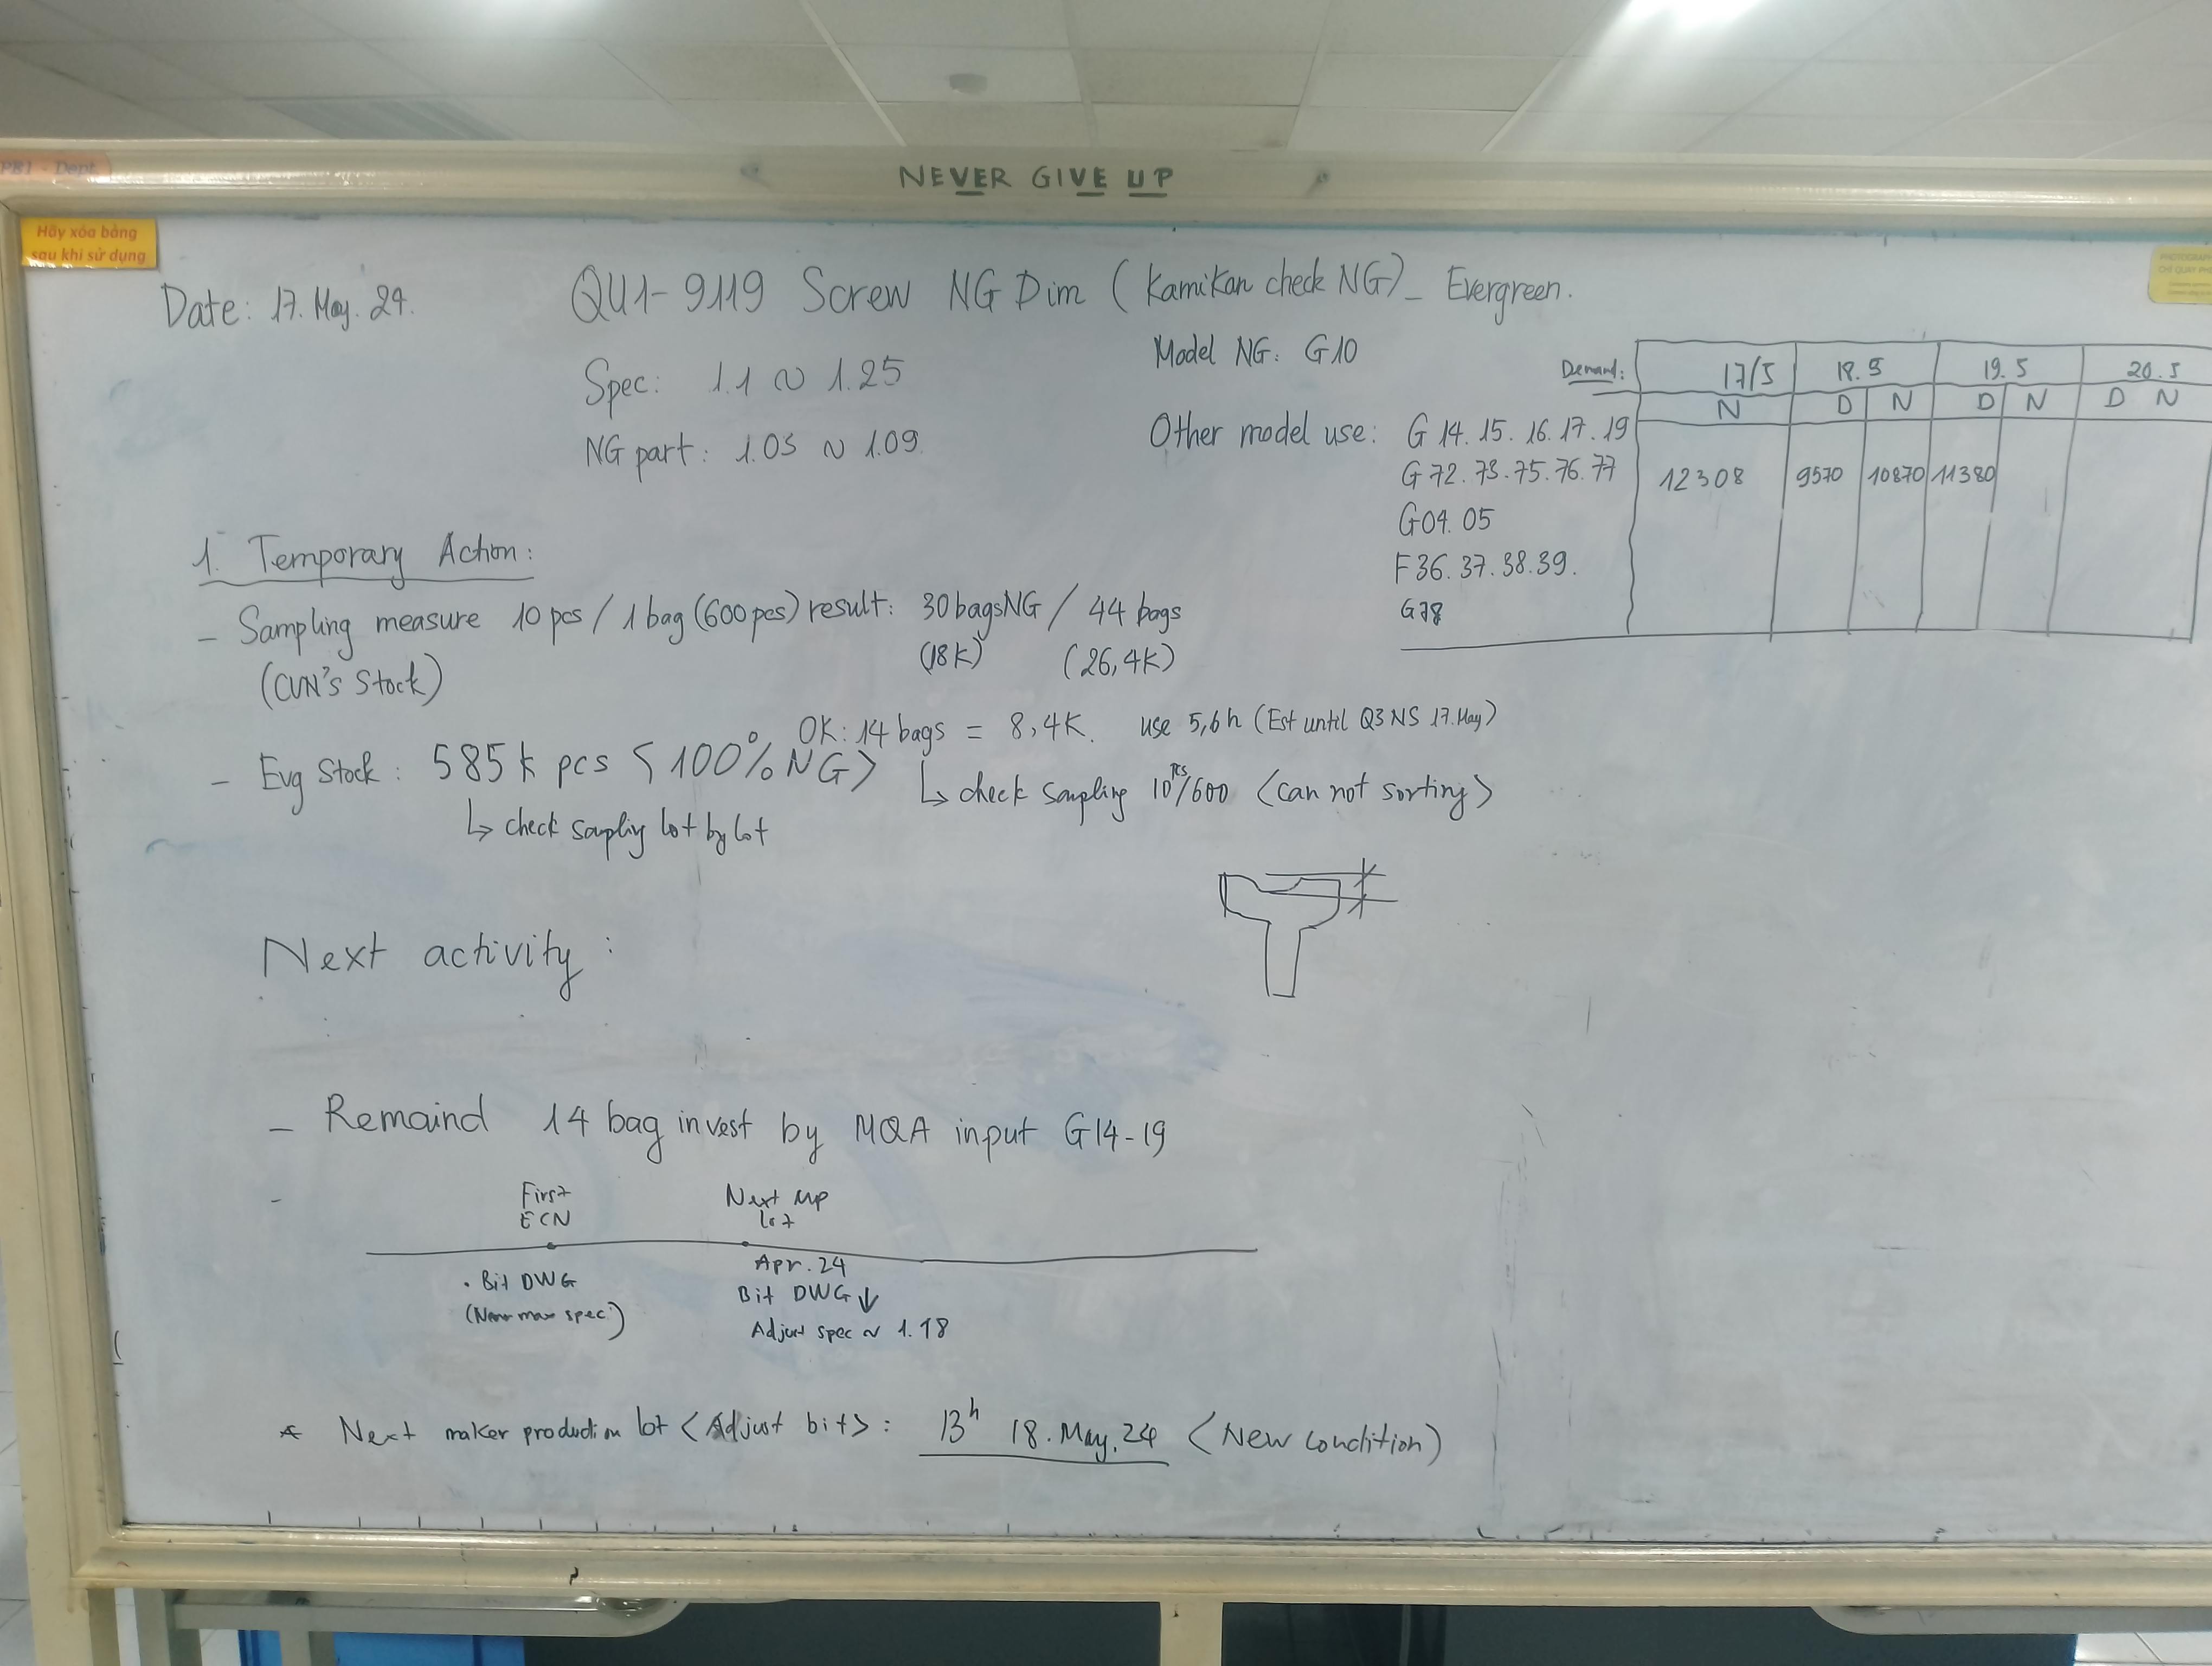 PE1 - Dept
NEVER GIVE UP
Hãy xóa bảng
sau khi sử dụng
Date: 17. May. 24.
QU1-9119 Screw NG Dim (Kamikan check NG)_ Evergreen.
Spec: 1.1 ~ 1.25
NG part: 1.05 ~ 1.09
Model NG: G10
Other model use: G 14. 15. 16. 17. 19
G 72. 73. 75. 76. 77
G04. 05
F36. 37. 38. 39.
G78
Demand: 17/5 18.5 19.5 20.5
N D N D N D N
12308 9570 10870 11380
1. Temporary Action:
- Sampling measure 10 pcs / 1 bag (600 pcs) result: 30 bags NG / 44 bags
(CVN's Stock) (18K) (26,4K)
OK: 14 bags = 8,4K. use 5,6h (Est until Q3 NS 17.May)
- Evg Stock: 585k pcs <100% NG>
↳ check sampling 10pcs/600 <can not sorting>
↳ check sampling lot by lot
Next activity:
- Remaind 14 bag invest by MQA input G14-19
-
First
ECN
Next MP
lot
. Bit DWG
max spec)
Apr. 24
Bit DWG ↓
Adjust spec ~ 1.18
* Next maker production lot <Adjust bit>: 13h 18. May. 24 <New condition)